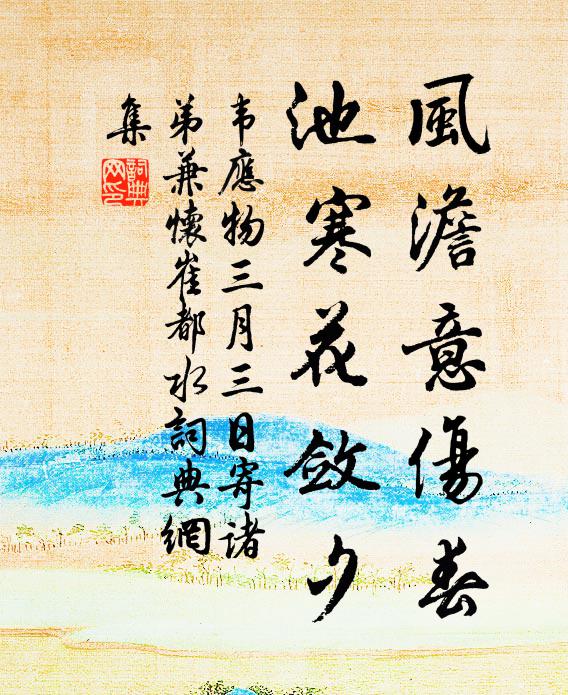 風澹意傷春
池寒花斂夕
韦應物三月三日寄诸
弟兼懷崔都水詞典網
集
詞典
网印